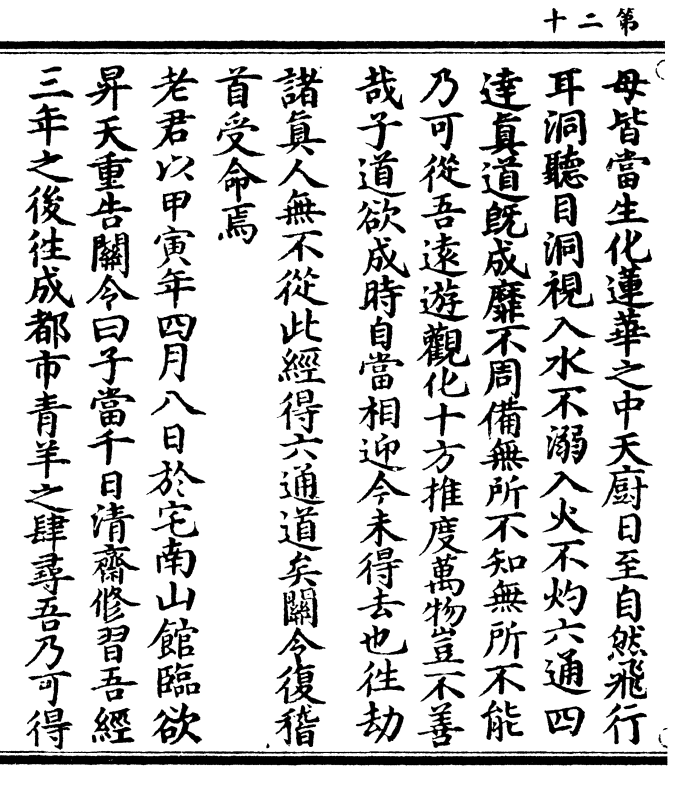 第二十
母皆當生化蓮華之中天廚日至自然飛行
耳洞聽目洞視入水不溺入火不灼六通四
達眞道旣成靡不周備無所不知無所不能
乃可從吾遠遊觀化十方推度萬物豈不善
哉子道欲成時自當相迎今未得去也徃劫
諸眞人無不從此經得六通道矣關令復稽
首受命焉
老君以甲寅年四月八日於宅南山館臨欲
昇天重告關令曰子當千日清齋修習吾經
三年之後徃成都市青羊之肆尋吾乃可得